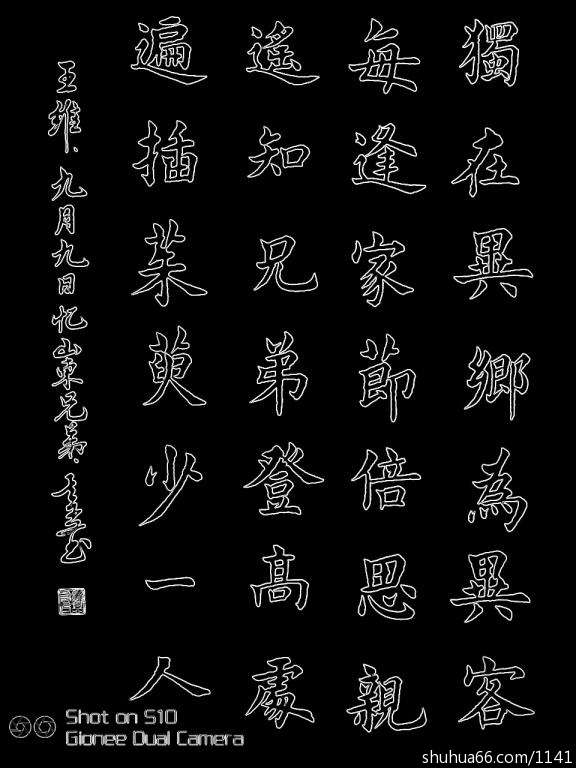 獨在異鄉為異客
每逢家節倍思親
遙知兄弟登高處
遍插茱萸少一人
王維、九月九日忆山東兄弟、
Shot on S10
Gionee Dual Camera
shuhua66.com/1141